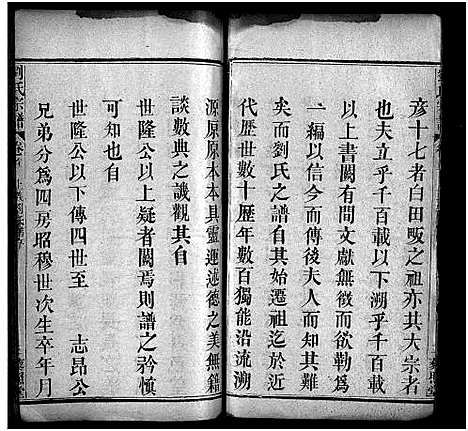 彦十七者白田畈之祖亦其大宗者
也夫立乎千百載以下溯乎千百載
以上書闕有間文獻無徵而欲勒為
一編以信今而傳後夫人而知其難
矣而劉氏之譜自其始遷祖迄於今
代歷世數十歷年數百獨能沿流溯
源原原本本具靈運述德之美無籍
談數典之譏觀其自
世隆公以上疑者闕焉則譜之矜慎
可知也自
世隆公以下傳四世至　志昂公
兄弟分為四房昭穆世次生卒年月
劉氏宗譜